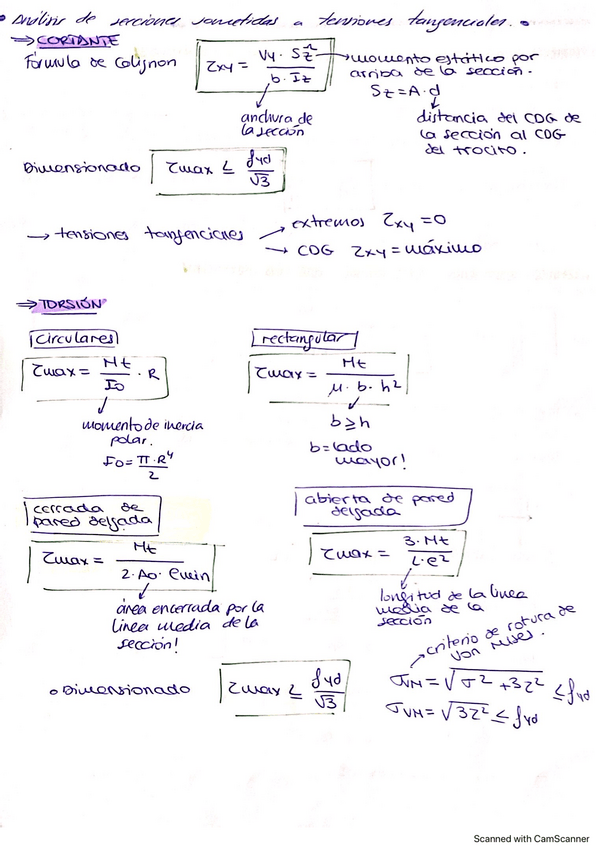 • Análisis de secciones sometidas a tensiones tangenciales. •
⇒ CORTANTE
Fórmula de Colignon
τxy = Vy · Sz / b · Iz
→ momento estático por
arriba de la sección.
Sz = A · d
anchura de
la sección
distancia del CDG de
la sección al CDG
del trocito.
Dimensionado τmax ≤ fyd / √3
→ tensiones tangenciales
→ extremos τxy = 0
→ CDG τxy = máximo
⇒ TORSIÓN
circulares
τmax = Mt / Io · R
momento de inercia
polar.
Io = π · R⁴ / 2
rectangular
τmax = Mt / μ · b · h²
b ≥ h
b = lado
mayor!
cerrada de
pared delgada
τmax = Mt / 2 · Ao · emin
área encerrada por la
línea media de la
sección!
abierta de pared
delgada
τmax = 3 · Mt / L · e²
longitud de la línea
media de la
sección
o Dimensionado τmax ≤ fyd / √3
criterio de rotura de
von Mises.
σVM = √σ² + 3τ² ≤ fyd
σVM = √3τ² ≤ fyd
Scanned with CamScanner